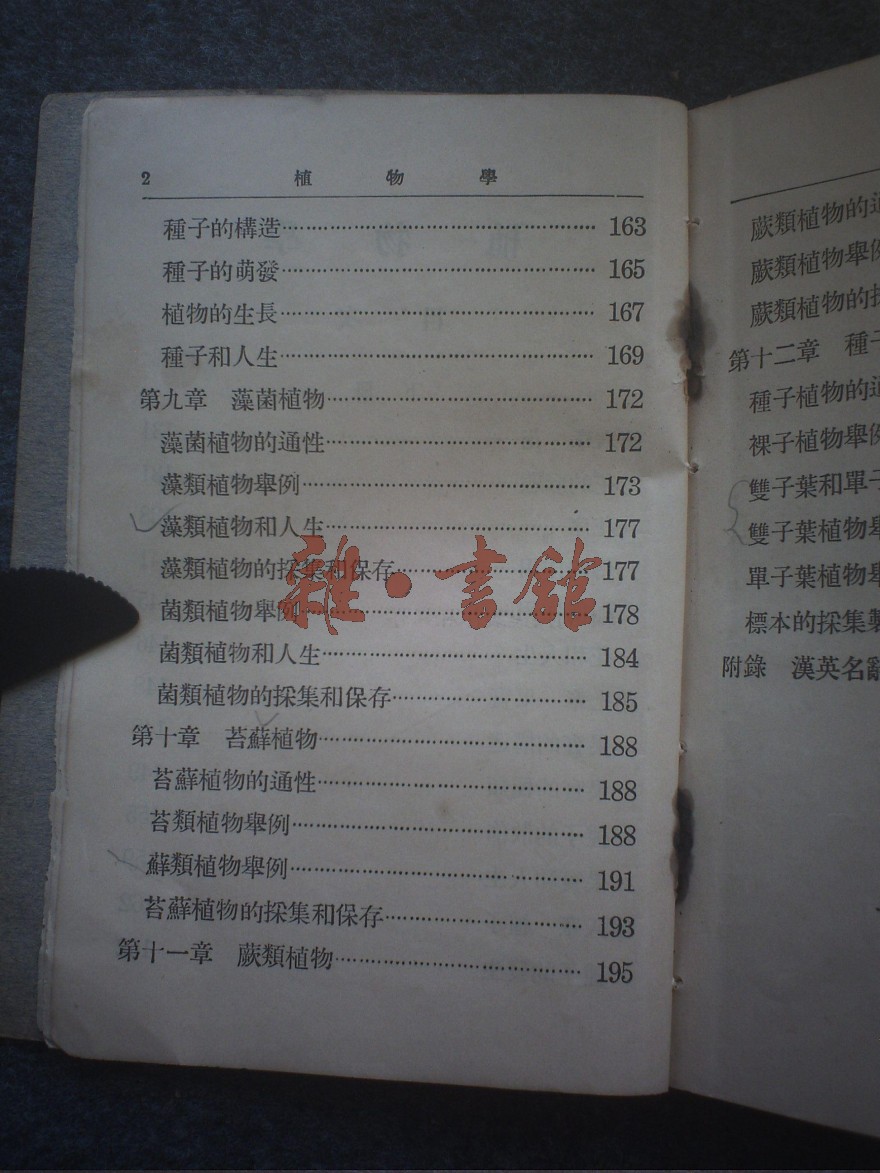 2 植物學
種子的構造 163
種子的萌發 165
植物的生長 167
種子和人生 169
第九章 藻菌植物 172
藻菌植物的通性 172
藻類植物舉例 173
藻類植物和人生 177
藻類植物的採集和保存 177
菌類植物舉例 178
菌類植物和人生 184
菌類植物的採集和保存 185
第十章 苔蘚植物 188
苔蘚植物的通性 188
苔類植物舉例 188
蘚類植物舉例 191
苔蘚植物的採集和保存 193
第十一章 蕨類植物 195
雜·書館
蕨類植物的
蕨類植物舉
蕨類植物的
第十二章 種
種子植物的
裸子植物舉
雙子葉和單
雙子葉植物
單子葉植物
標本的採集
附錄 漢英名